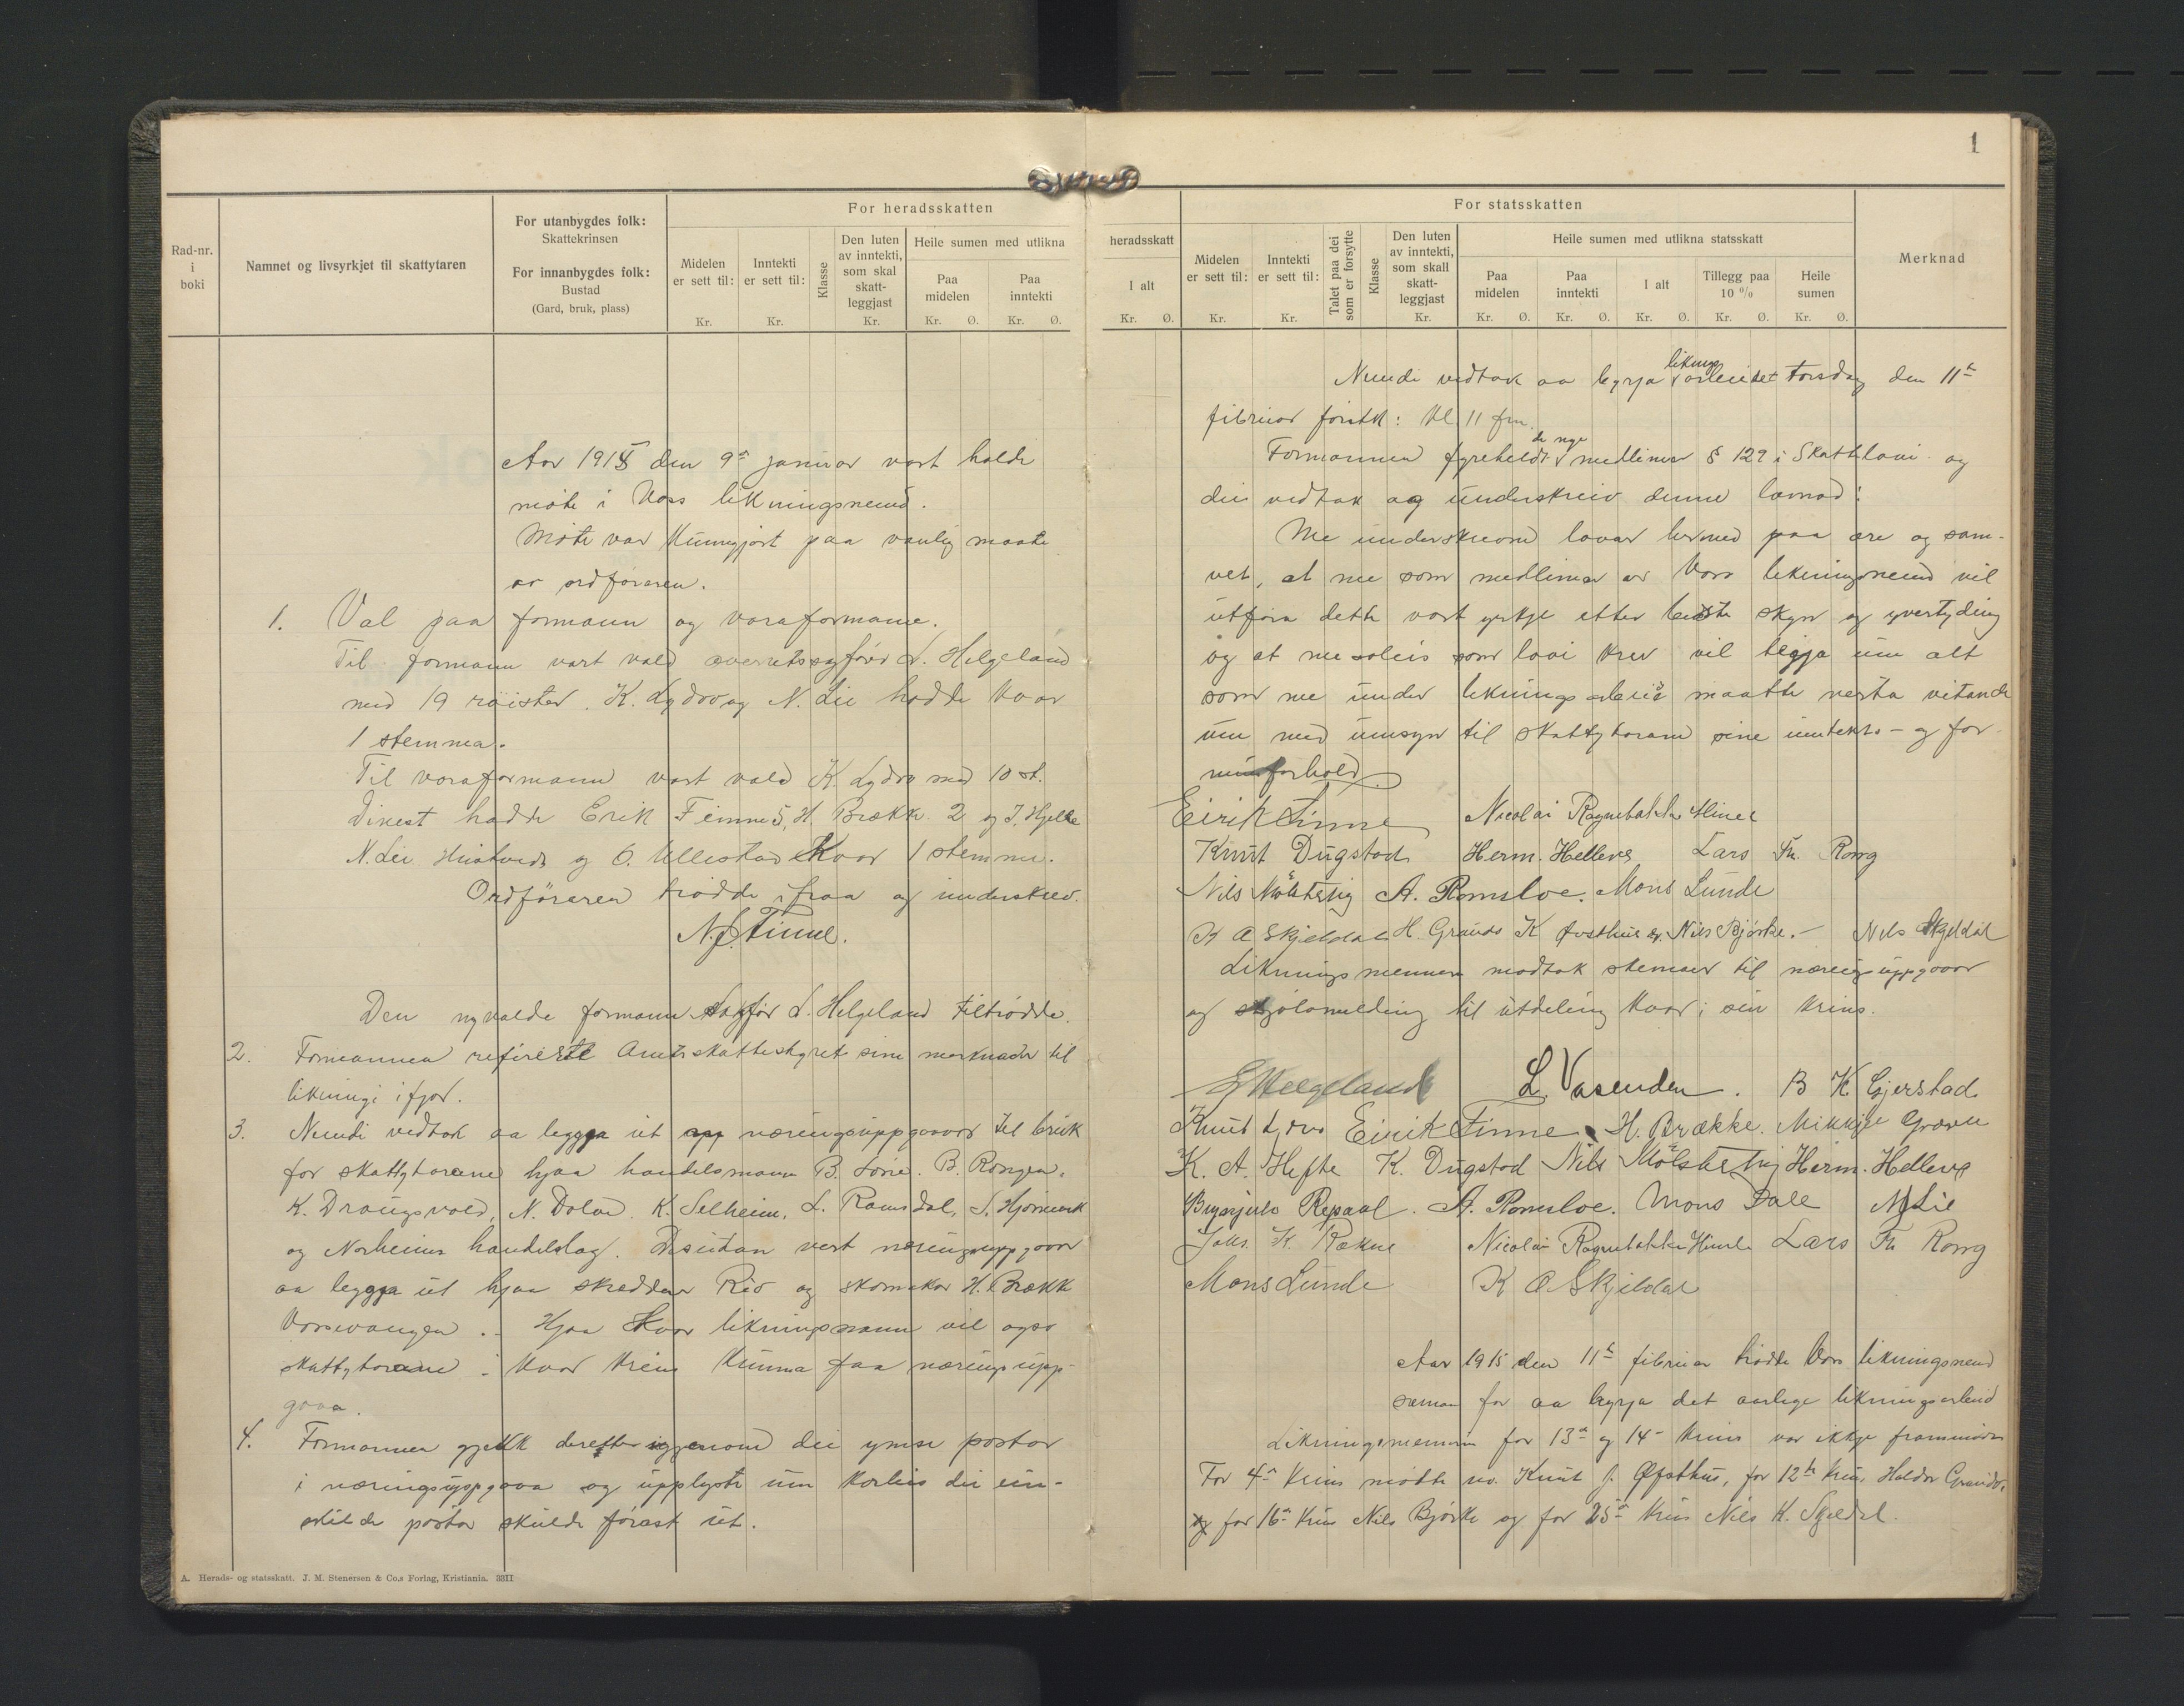 1
Rad-nr. i boki
Namnet og livsyrkjet til skattytaren
For utanbygdes folk:
Skattekrinsen
For innanbygdes folk:
Bustad
(Gard, bruk, plass)
For heradsskatten
Midelen er sett til:
Kr.
Inntekti er sett til:
Kr.
Klasse
Den luten av inntekti, som skal skatt-leggjast
Kr.
Heile sumen med utlikna
Paa midelen
Kr. Ø.
Paa inntekti
Kr. Ø.
heradsskatt
I alt
Kr. Ø.
For statsskatten
Midelen er sett til:
Kr.
Inntekti er sett til:
Kr.
Talet paa dei som er forsytte
Klasse
Den luten av inntekti, som skall skatt-leggjast
Kr.
Heile sumen med utlikna statsskatt
Paa midelen
Kr. Ø.
Paa inntekti
Kr. Ø.
I alt
Kr. Ø.
Tillegg paa 10 %
Kr. Ø.
Heile sumen
Kr. Ø.
Merknad
Aar 1915 den 9de januar vart halde
møte i Voss likningsnemd.
Møte var kunngjort paa vanlig maate
av ordføraren.
1. Val paa formann og varaformann.
Til formann vart vald overretssagfører L. Helgeland
med 19 røister. K. Lydvo og N. Lie hadde kvar
1 stemma.
Til varaformann vart vald K. Lydvo med 10 st.
Dinest hadde Erik Finne 5, H. Brække 2 og J. Hjelle
N. Lie og O. Ullestad kvar 1 stemme.
Ordføraren tradde ifraa og underskrev.
N. Finne.
Den nyvalde formann Sagfør L. Helgeland tiltrødde.
2. Formannen refererte Amtsskattestyret sine merknader til
likningi ifjor.
3. Nemdi vedtok aa leggja ut næringsuppgavor til bruk
for skattytarane hjaa handelsmann B. Lone. B. Rongen,
K. Draugsvold, N. Dolve. K. Selheim, L. Ramsdal, S. Hjørnevik
og Norheims handelslag. Desutan vert næringsuppgavor
aa leggja ut hjaa skreddar Rio og skomakar H. Brækk
Vossevangen. - Hjaa kvar likningsmann vil ogso
skattytarane i kvar krins kunna faa næringsupp-
gava.
4. Formannen gjekk derefter iggjenom dei ymse postar
i næringsuppgava og upplyste um korleis dei ein-
skilde postar skulde førast ut.
A. Herads- og statsskatt. J. M. Stenersen & Co.s Forlag, Kristiania. 3811
Nemdi vedtok aa byrja liknings arbeidet torsdag den 11te
februar førstk: kl. 11 fm.
Formannen fyreheldt de nye medlimer § 129 i Skattelovi og
dei vedtok og underskreiv denne lovnad:
Me underskrevne lovar hermed paa ære og sam-
vet, at me som medlimer av Voss likningsnemd vil
utføra dette vort yrkje etter beste skyn og yvertyding
og at me soleis som lovi krev vil tegja um alt
som me under likningsarbeid maatte verta vitande
um med umsyn til skattytarane sine inntekts- og for-
mueforhold
Eirik Finne Nicolai Rognebakke Himle
Knut Dugstad Herm. Helleve Lars Th. Rong
Nils Mølsterteig A. Romsloe. Mons Lunde
K A Skjeldal H. Graude K Øvsthus Nils Bjørke. - Nils Skjeldal
Likningsmennene modtok stemner til næringsuppgavor
og sjølvmelding til utdeling kvar i sin krins.
L Helgeland L. Vasenden. B K Gjerstad
Knut Lydvo Eirik Finne H. Brække. Mikkjel Grove
K. A. Hefte K. Dugstad Nils Mølsterteig Herm. Helleve
Brynjulv Repaal. A. Romsloe. Mons Dale N Lie
Joh. K. Rokne Nicolai Rognebakke Himle Lars Th Rong
Mons Lunde K A Skjeldal
Aar 1915 den 11te februar trødde Voss likningsnemd
saman for aa byrja det aarlege likningsarbeid
Likningsmennene for 13de og 14de krins var ikkje frammøtt
For 4de krins møtte vv. Knut J. Øfsthus, for 12te krins Haldor Graude,
og for 16de krins Nils Bjørke og for 25de krins Nils K. Skjeldal.